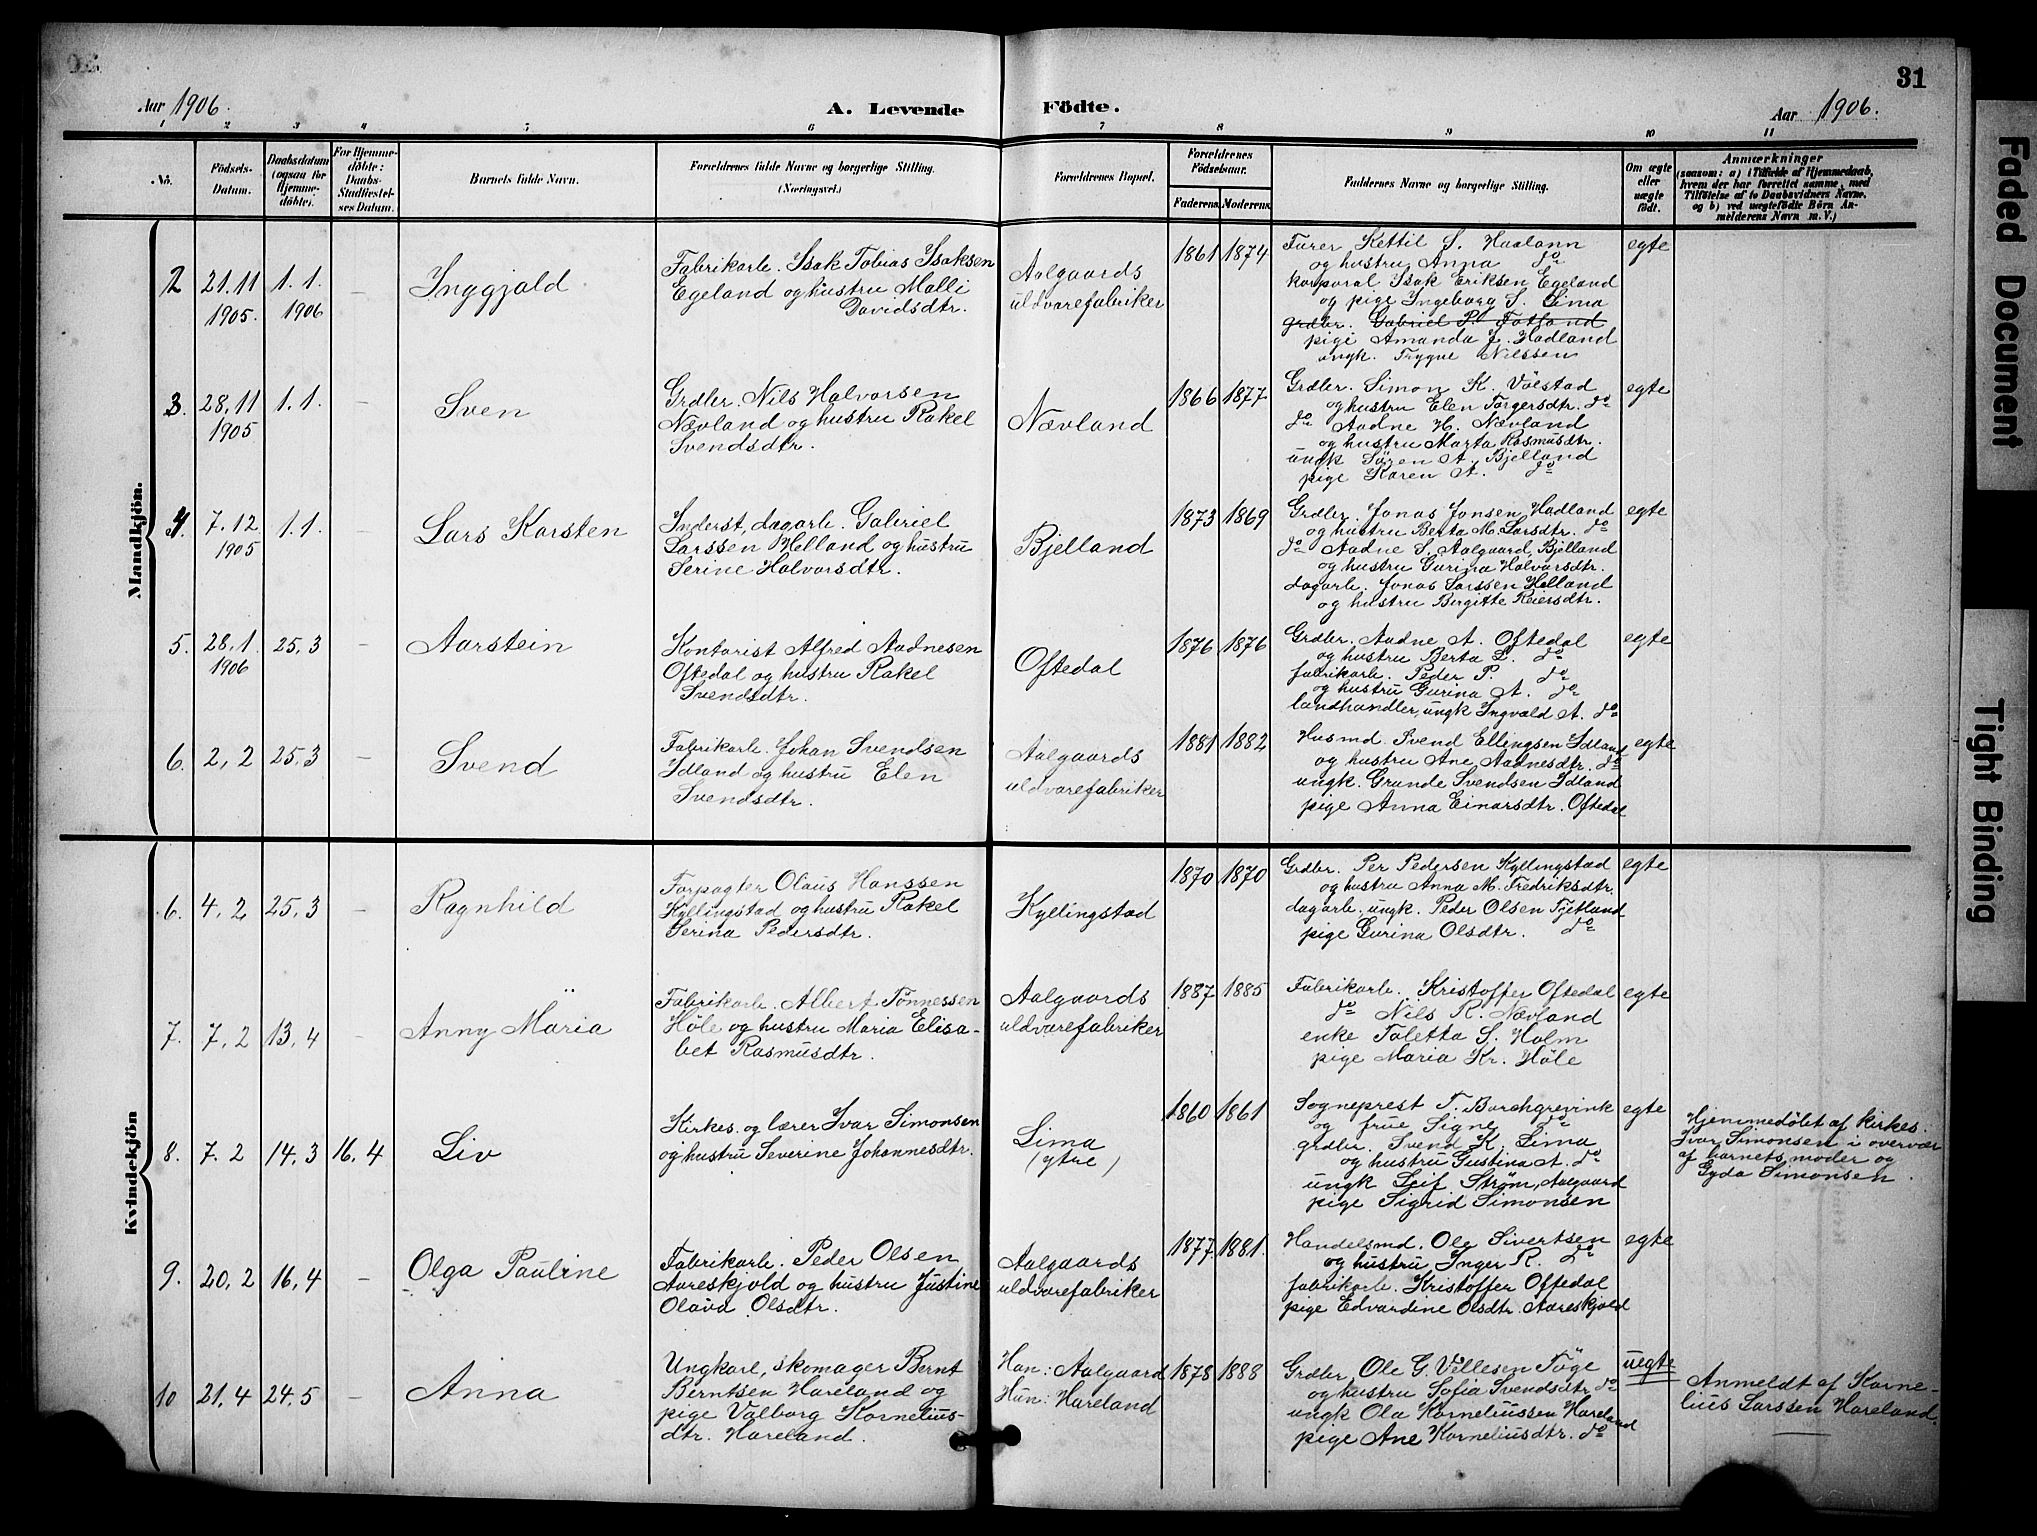 31
Aar 1906.
A. Levende Födte.
Aar 1906.
1 2 3 4 5 6 7 8 9 10 11
No.
Födsels-
Datum.
Daabsdatum
(ogsaa for
Hjemme-
döbte).
For Hjemme-
döbte:
Daabs-
Stadfæstel-
ses Datum.
Barnets fulde Navn.
Forældrenes fulde Navne og borgerlige Stilling.
(Næringsvei.)
Forældrenes Bopæl.
Forældrenes
Födselsaar.
Faderens.
Moderens.
Faddernes Navne og borgerlige Stilling.
Om ægte
eller
uægte
født.
Anmærkninger
(saasom: a) i Tilfælde af Hjemmedaab,
hvem der har forrettet samme, med
Tilföielse af to Daabsvidners Navne,
og b) ved uægtefödte Börn An-
melderens Navn m. V.)
Mandkjön.
2
21.11
1905.
1.1.
1906
–
Inggjald
Fabrikarb. Isak Tobias Isaksen
Egeland og hustru Malli
Davidsdtr.
Aalgaards
uldvarefabriker
1861
1874
Furer Kettil S. Haaland
og hustru Anna do
korporal Isak Eriksen Egeland
og pige Ingeborg S. Lima
grdbr. Gabriel P. Fotland
pige Amanda J. Hadland
ungk. Trygve Nilssen
egte
3.
28.11
1905
1.1.
–
Sven
Grdbr. Nils Halvorsen
Nævland og hustru Rakel
Svendsdtr.
Nævland
1866
1877
Grdbr. Simon K. Vølstad
og hustru Elen Torgersdtr. do
do Aadne H. Nævland
og hustru Marta Rasmusdtr.
ungk Sören A. Bjelland
pige Karen A. do
egte
4.
7.12
1905
1.1.
–
Lars Karsten
Inderst, dagarb. Gabriel
Larssen Helland og hustru
Serine Halvorsdtr.
Bjelland
1873
1869
Grdbr. Jonas Jonsen Hadland
og hustru Berta M. Larsdtr. do
do Aadne S. Aalgaard, Bjelland
og hustru Gurina Halvorsdtr.
dagarb. Jonas Larssen Helland
og hustru Bergitte Reiersdtr.
egte
5.
28.1
1906
25.3
–
Aarstein
Kontorist Alfred Aadnesen
Oftedal og hustru Rakel
Svendsdtr.
Oftedal
1876
1876
Grdbr. Aadne A. Oftedal
og hustru Berta L. do
fabrikarb. Peder P. do
og hustru Gurina A. do
landhandler, ungk Ingvald A. do
egte
6.
2.2
25.3
–
Svend
Fabrikarb. Johan Svendsen
Idland og hustru Elen
Svendsdtr.
Aalgaards
uldvarefabriker
1881
1882
Husmd. Svend Ellingsen Idland
og hustru Ane Aadnesdtr. do
ungk. Grunde Svendsen Idland
pige Anna Einarsdtr. Oftedal
egte
Kvindekjön
6.
4.2
25.3
–
Ragnhild
Forpagter Olaus Hanssen
Kyllingstad og hustru Rakel
Serina Pedersdtr.
Kyllingstad
1870
1870
Grdbr. Per Pedersen Kyllingstad
og hustru Anna M. Fredriksdtr.
dagarb., ungk. Peder Olsen Tjetland
pige Gurina Olsdtr. do
egte
7.
7.2
13.4
–
Anny Maria
Fabrikarb. Albert Tönnessen
Høle og hustru Maria Elisa-
bet Rasmusdtr.
Aalgaards
uldvarefabriker
1887
1885
Fabrikarb. Kristoffer Oftedal
do Nils R. Nævland
enke Taletta S. Holm
pige Maria Kr. Høle
egte
8.
7.2
14.3
16.4
Liv
Kirkes. og lærer Ivar Simonsen
og hustru Severine Johannesdtr.
Lima
(ytre)
1860
1861
Sogneprest T. Borchgrevink
og frue Signe do
grdbr. Svend K. Lima
og hustru Gustina A. do
ungk Leif Strøm, Aalgaard
pige Sigrid Simonsen
egte
Hjemmedøbt af kirkes.
Ivar Simonsen i overvær
af barnets moder og
Gyda Simonsen.
9.
20.2
16.4
–
Olga Pauline
Fabrikarb. Peder Olsen
Aareskjold og hustru Justine
Olava Olsdtr.
Aalgaards
uldvarefabriker
1877
1881.
Handelsmd. Ole Sivertsen
og hustru Inger R. do
fabrikarb. Kristoffer Oftedal
pige Edvardine Olsdtr. Aareskjold
egte
10
21.4
24.5
–
Anna
Ungkarl, skomager Bernt
Berntsen Hareland og
pige Valborg Kornelius-
dtr. Hareland.
Han: Aalgaard
Hun: Hareland
1878
1888
Grdbr. Ole G. Vellesen Tøge
og hustru Sofia Svendsdtr. do
ungk Ola Korneliussen Hareland
pige Ane Korneliusdtr. do
uegte
Anmeldt af Korne-
lius Larssen Hareland.
Faded Document
Tight Binding